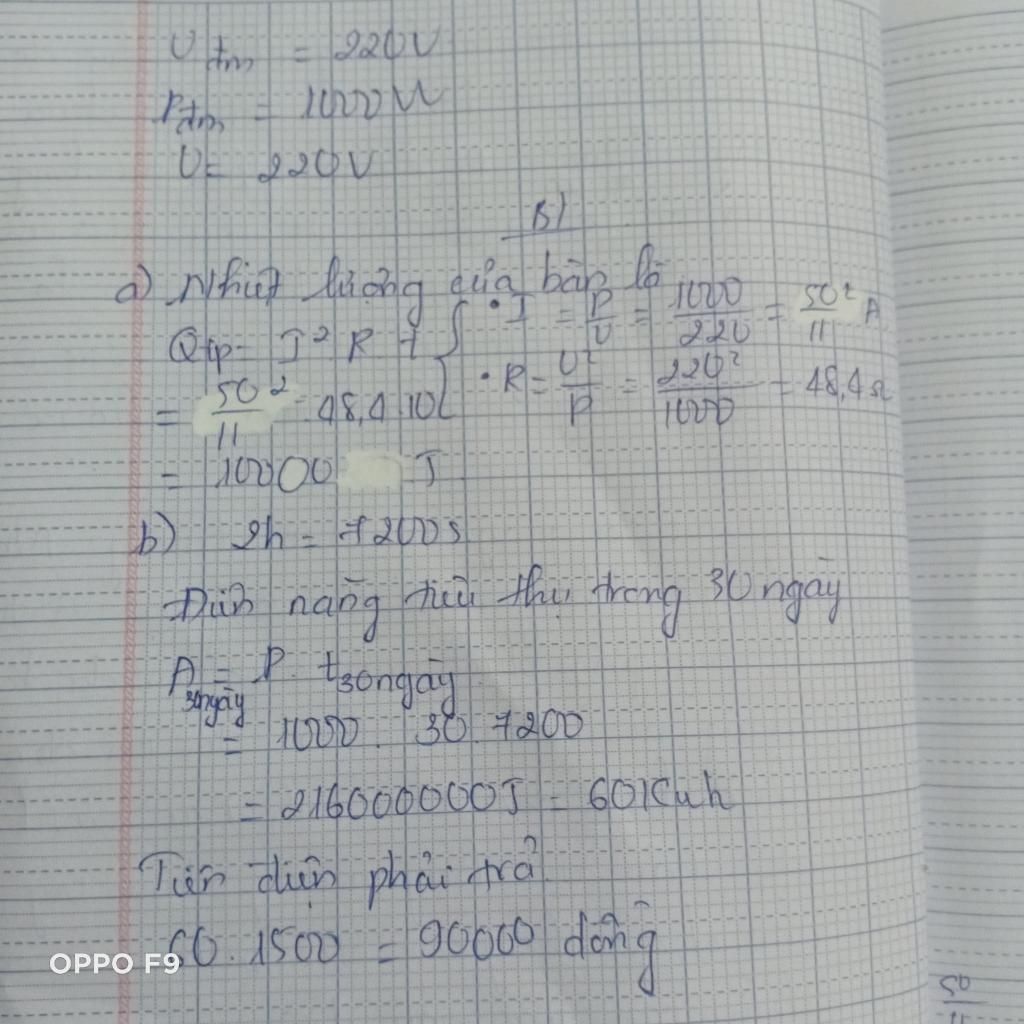 Uđm = 220V
Pđm = 1000W
U = 220V
Bl
a) Nhiệt lượng của bàn là
Qtp = I² R t { • I = P/U = 1000/220 = 50²/11 A
= 50²/11 . 48,4 . 10 { • R = U²/P = 220²/1000 = 48,4Ω
= 10000 J
b) 2h = 7200s
Điện năng tiêu thụ trong 30 ngày
A30ngày = P. t30ngày
= 1000. 30. 7200
= 216000000J = 60Kwh
Tiền điện phải trả
60. 1500 = 90000 đồng
OPPO F9
50
11